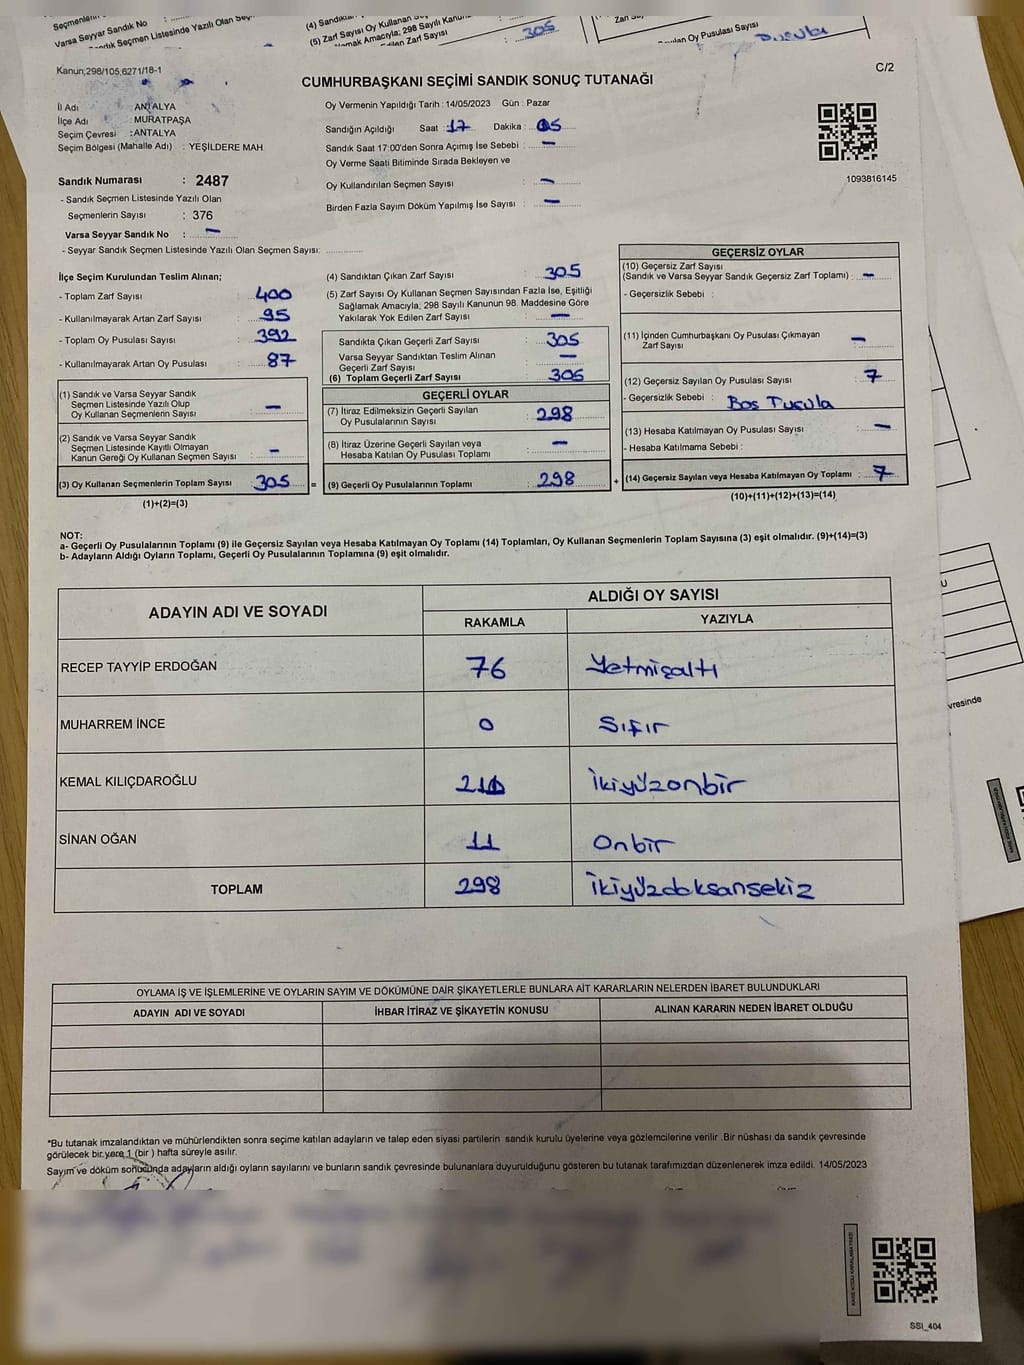 Seçmenlerin
Varsa Seyyar Sandık No
Seçmen Listesinde Yazılı Olan
(5) Zarf Sayısı Oy Kullanan
Amacıyla; 298 Sayılı
Zarf Sayısı
305
Oy Pusulası Sayısı
Pusula
Kanun;298/105,6271/18-1
C/2
CUMHURBAŞKANI SEÇİMİ SANDIK SONUÇ TUTANAĞI
İl Adı : ANTALYA
İlçe Adı : MURATPAŞA
Seçim Çevresi :ANTALYA
Seçim Bölgesi (Mahalle Adı) : YEŞİLDERE MAH
Sandık Numarası : 2487
- Sandık Seçmen Listesinde Yazılı Olan
Seçmenlerin Sayısı : 376
Varsa Seyyar Sandık No : –
- Seyyar Sandık Seçmen Listesinde Yazılı Olan Seçmen Sayısı: ..............
Oy Vermenin Yapıldığı Tarih : 14/05/2023 Gün : Pazar
Sandığın Açıldığı Saat : 17 Dakika : 05
Sandık Saat 17:00'den Sonra Açımış İse Sebebi : –
Oy Verme Saati Bitiminde Sırada Bekleyen ve
Oy Kullandırılan Seçmen Sayısı : –
Birden Fazla Sayım Döküm Yapılmış İse Sayısı : –
1093816145
İlçe Seçim Kurulundan Teslim Alınan;
- Toplam Zarf Sayısı : 400
- Kullanılmayarak Artan Zarf Sayısı : 95
- Toplam Oy Pusulası Sayısı : 392
- Kullanılmayarak Artan Oy Pusulası : 87
(1) Sandık ve Varsa Seyyar Sandık
Seçmen Listesinde Yazılı Olup
Oy Kullanan Seçmenlerin Sayısı : –
(2) Sandık ve Varsa Seyyar Sandık
Seçmen Listesinde Kayıtlı Olmayan
Kanun Gereği Oy Kullanan Seçmen Sayısı : –
(3) Oy Kullanan Seçmenlerin Toplam Sayısı 305
(1)+(2)=(3)
=
(4) Sandıktan Çıkan Zarf Sayısı : 305
(5) Zarf Sayısı Oy Kullanan Seçmen Sayısından Fazla İse, Eşitliği
Sağlamak Amacıyla; 298 Sayılı Kanunun 98. Maddesine Göre
Yakılarak Yok Edilen Zarf Sayısı : –
Sandıkta Çıkan Geçerli Zarf Sayısı : 305
Varsa Seyyar Sandıktan Teslim Alınan
Geçerli Zarf Sayısı : –
(6) Toplam Geçerli Zarf Sayısı : 305
GEÇERLİ OYLAR
(7) İtiraz Edilmeksizin Geçerli Sayılan
Oy Pusulalarının Sayısı : 298
(8) İtiraz Üzerine Geçerli Sayılan veya
Hesaba Katılan Oy Pusulası Toplamı : –
(9) Geçerli Oy Pusulalarının Toplamı : 298
+
GEÇERSİZ OYLAR
(10) Geçersiz Zarf Sayısı
(Sandık ve Varsa Seyyar Sandık Geçersiz Zarf Toplamı) : –
- Geçersizlik Sebebi :
(11) İçinden Cumhurbaşkanı Oy Pusulası Çıkmayan
Zarf Sayısı : –
(12) Geçersiz Sayılan Oy Pusulası Sayısı : 7
- Geçersizlik Sebebi : Boş Pusula
(13) Hesaba Katılmayan Oy Pusulası Sayısı : –
- Hesaba Katılmama Sebebi :
(14) Geçersiz Sayılan veya Hesaba Katılmayan Oy Toplamı : 7
(10)+(11)+(12)+(13)=(14)
NOT:
a- Geçerli Oy Pusulalarının Toplamı (9) ile Geçersiz Sayılan veya Hesaba Katılmayan Oy Toplamı (14) Toplamları, Oy Kullanan Seçmenlerin Toplam Sayısına (3) eşit olmalıdır. (9)+(14)=(3)
b- Adayların Aldığı Oyların Toplamı, Geçerli Oy Pusulalarının Toplamına (9) eşit olmalıdır.
ADAYIN ADI VE SOYADI ALDIĞI OY SAYISI
RAKAMLA YAZIYLA
RECEP TAYYİP ERDOĞAN 76 Yetmişaltı
MUHARREM İNCE 0 Sıfır
KEMAL KILIÇDAROĞLU 211 İkiyüzonbir
SİNAN OĞAN 11 Onbir
TOPLAM 298 İkiyüzdoksansekiz
OYLAMA İŞ VE İŞLEMLERİNE VE OYLARIN SAYIM VE DÖKÜMÜNE DAİR ŞİKAYETLERLE BUNLARA AİT KARARLARIN NELERDEN İBARET BULUNDUKLARI
ADAYIN ADI VE SOYADI İHBAR İTİRAZ VE ŞİKAYETİN KONUSU ALINAN KARARIN NEDEN İBARET OLDUĞU
*Bu tutanak imzalandıktan ve mühürlendikten sonra seçime katılan adayların ve talep eden siyasi partilerin sandık kurulu üyelerine veya gözlemcilerine verilir .Bir nüshası da sandık çevresinde
görülecek bir yere 1 (bir ) hafta süreyle asılır.
Sayım ve döküm sonucunda adayların aldığı oyların sayılarını ve bunların sandık çevresinde bulunanlara duyurulduğunu gösteren bu tutanak tarafımızdan düzenlenerek imza edildi. 14/05/2023
SSI_404